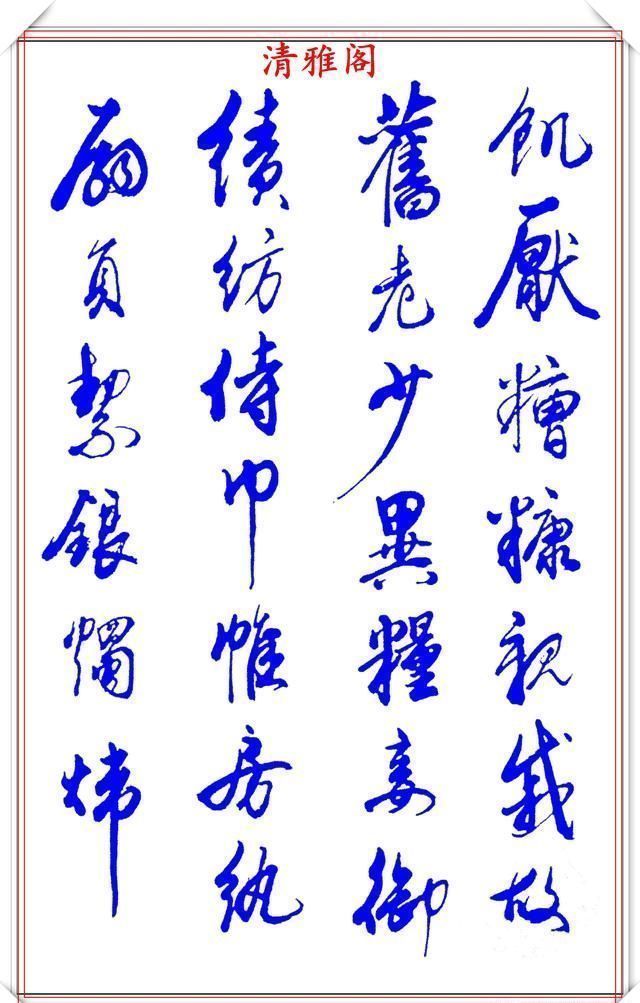 清雅阁
飢厭糟糠親戚故
舊老少異糧妾御
績紡侍巾帷房紈
扇員絜銀燭煒